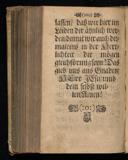 lassen, daß wir hier im
Leiden dir ähnlich werden
damit wir auch dermaleins
in der Herrlichkeit
dir mögen
gleichförmig seyn! Das
gieb uns aus Gnaden,
HErr JEsu; um
dein selbst willen
Amen!